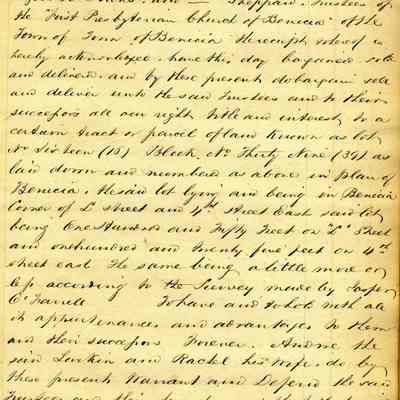 Sheppard, Trustees of
the "First Presbyterian Church of Benicia" of the
Town of Benicia the receipt whereof is
hereby acknowledged have this day bargained sold
and delivered and by these presents do bargain sell
and deliver unto the said Trustees and to their
successors all our right title and interest to a
certain tract or parcel of land known as lot
No Sixteen (16) Block No Thirty Nine (39) as
laid down and numbered as above in plan of
Benicia, the said lot lying and being in Benicia
Corner of L Street and 4th Street East said lot
being One Hundred and Fifty Feet on "L" Street
and one hundred and twenty five feet on 4th
street east the same being a little more or
less according to the Survey made by Jasper
O'Farrell To have and to hold with all
its appurtenances and advantages to them
and their successors Forever. And we the
said Larkin and Rachel his Wife, do by
these presents Warrant and Defend the said
Trustees and their